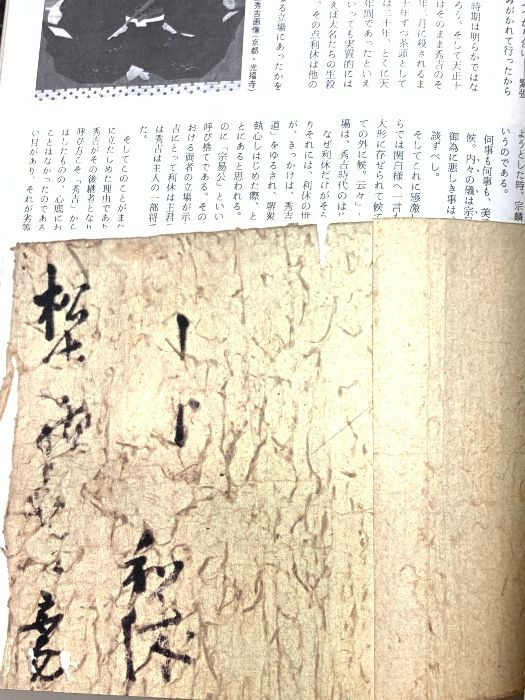 みがかれて行ったから
時期は明らかではな
ろう。そして天正十
はそのまま秀吉のそ
年二月に殺されるま
十年ずつ茶頭として
は二十年、とくに天
年間であったといえ
いっても実質的には
えば大名たちの生殺
。その点利休は他の
る立場にあったかを
秀吉画像(京都・光福寺)
ようとした時、宗麟
いうのである。
何事も何事も、美
候。内々の儀は宗
御為に悪しき事は
談ずべし。
そしてこれに感激し
らでは関白様へ一言も
大形に存ぜられて候て
ての外に候。云々」
場は、秀吉時代のはじ
なぜ利休だけがそう
りそれには、利休の世
が、きっかけは、秀吉
道』をゆるされ、堺衆
執心しはじめた際、と
とにあると思われる。
のに「宗易公」といい
呼び捨てである。その
おける両者の立場が示
吉にとって利休は主君
は秀吉は主人の一部将で
た。
そしてこのことがまた
に立たしめた理由であり
秀吉がその後継者となり
呼び方こそ「秀吉」から
はしたものの、心底にお
ことはなかったのである
い目があり、それが劣等
利休
松